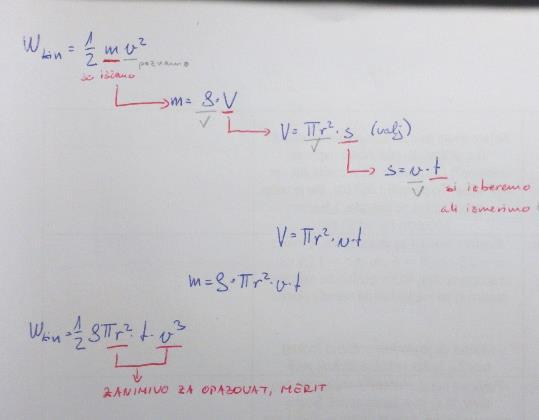 W kin = 1/2 m v²
poznamo
si iščemo
m = ρ · V
V = πr² · s (valj)
s = v · t
si izberemo
ali izmerimo
V = πr² · v · t
m = ρ · πr² · v · t
W kin = 1/2 ρ πr² · t · v³
ZANIMIVO ZA OPAZOVAT, MERIT